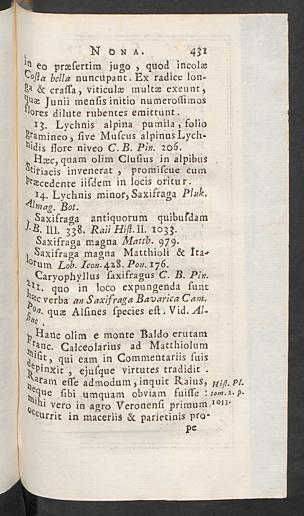 NONA. 431
in eo præsertim jugo, quod incolæ
Costa bella nuncupant. Ex radice lon-
ga & crassa, viticulæ multæ exeunt,
quæ Junii mensis initio numerosissimos
flores dilute rubentes emittunt.
13. Lychnis alpina pumila, folio
gramineo, sive Muscus alpinus Lych-
nidis flore niveo C. B. Pin. 206.
Hæc, quam olim Clusius in alpibus
Stiriacis invenerat, promiscue cum
præcedente iisdem in locis oritur.
14. Lychnis minor, Saxifraga Pluk.
Almag. Bot.
Saxifraga antiquorum quibusdam
J. B. III. 338. Raii Hist. II. 1033.
Saxifraga magna Matth. 979.
Saxifraga magna Matthioli & Ita-
lorum Lob. Icon. 428. Pon. 176.
Caryophyllus saxifragus C. B. Pin.
211. quo in loco expungenda sunt
hæc verba an Saxifraga Bavarica Cam.
Pon. quæ Alsines species est. Vid. Al-
sine.
Hanc olim e monte Baldo erutam
Franc. Calceolarius ad Matthiolum
misit, qui eam in Commentariis suis
depinxit, ejusque virtutes tradidit.
Raram esse admodum, inquit Raius,
neque sibi umquam obviam fuisse:
mihi vero in agro Veronensi primum
occurrit in maceriis & parietinis pro-
pe
Hist. Pl.
tom. 2. p.
1033.